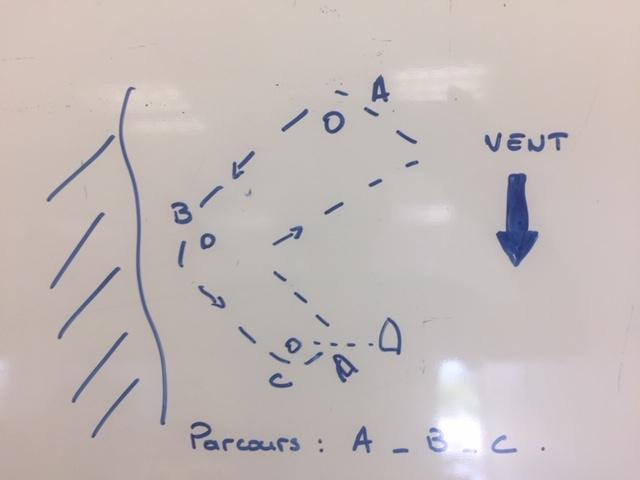 A
VENT
B
C
Parcours : A _ B _ C .